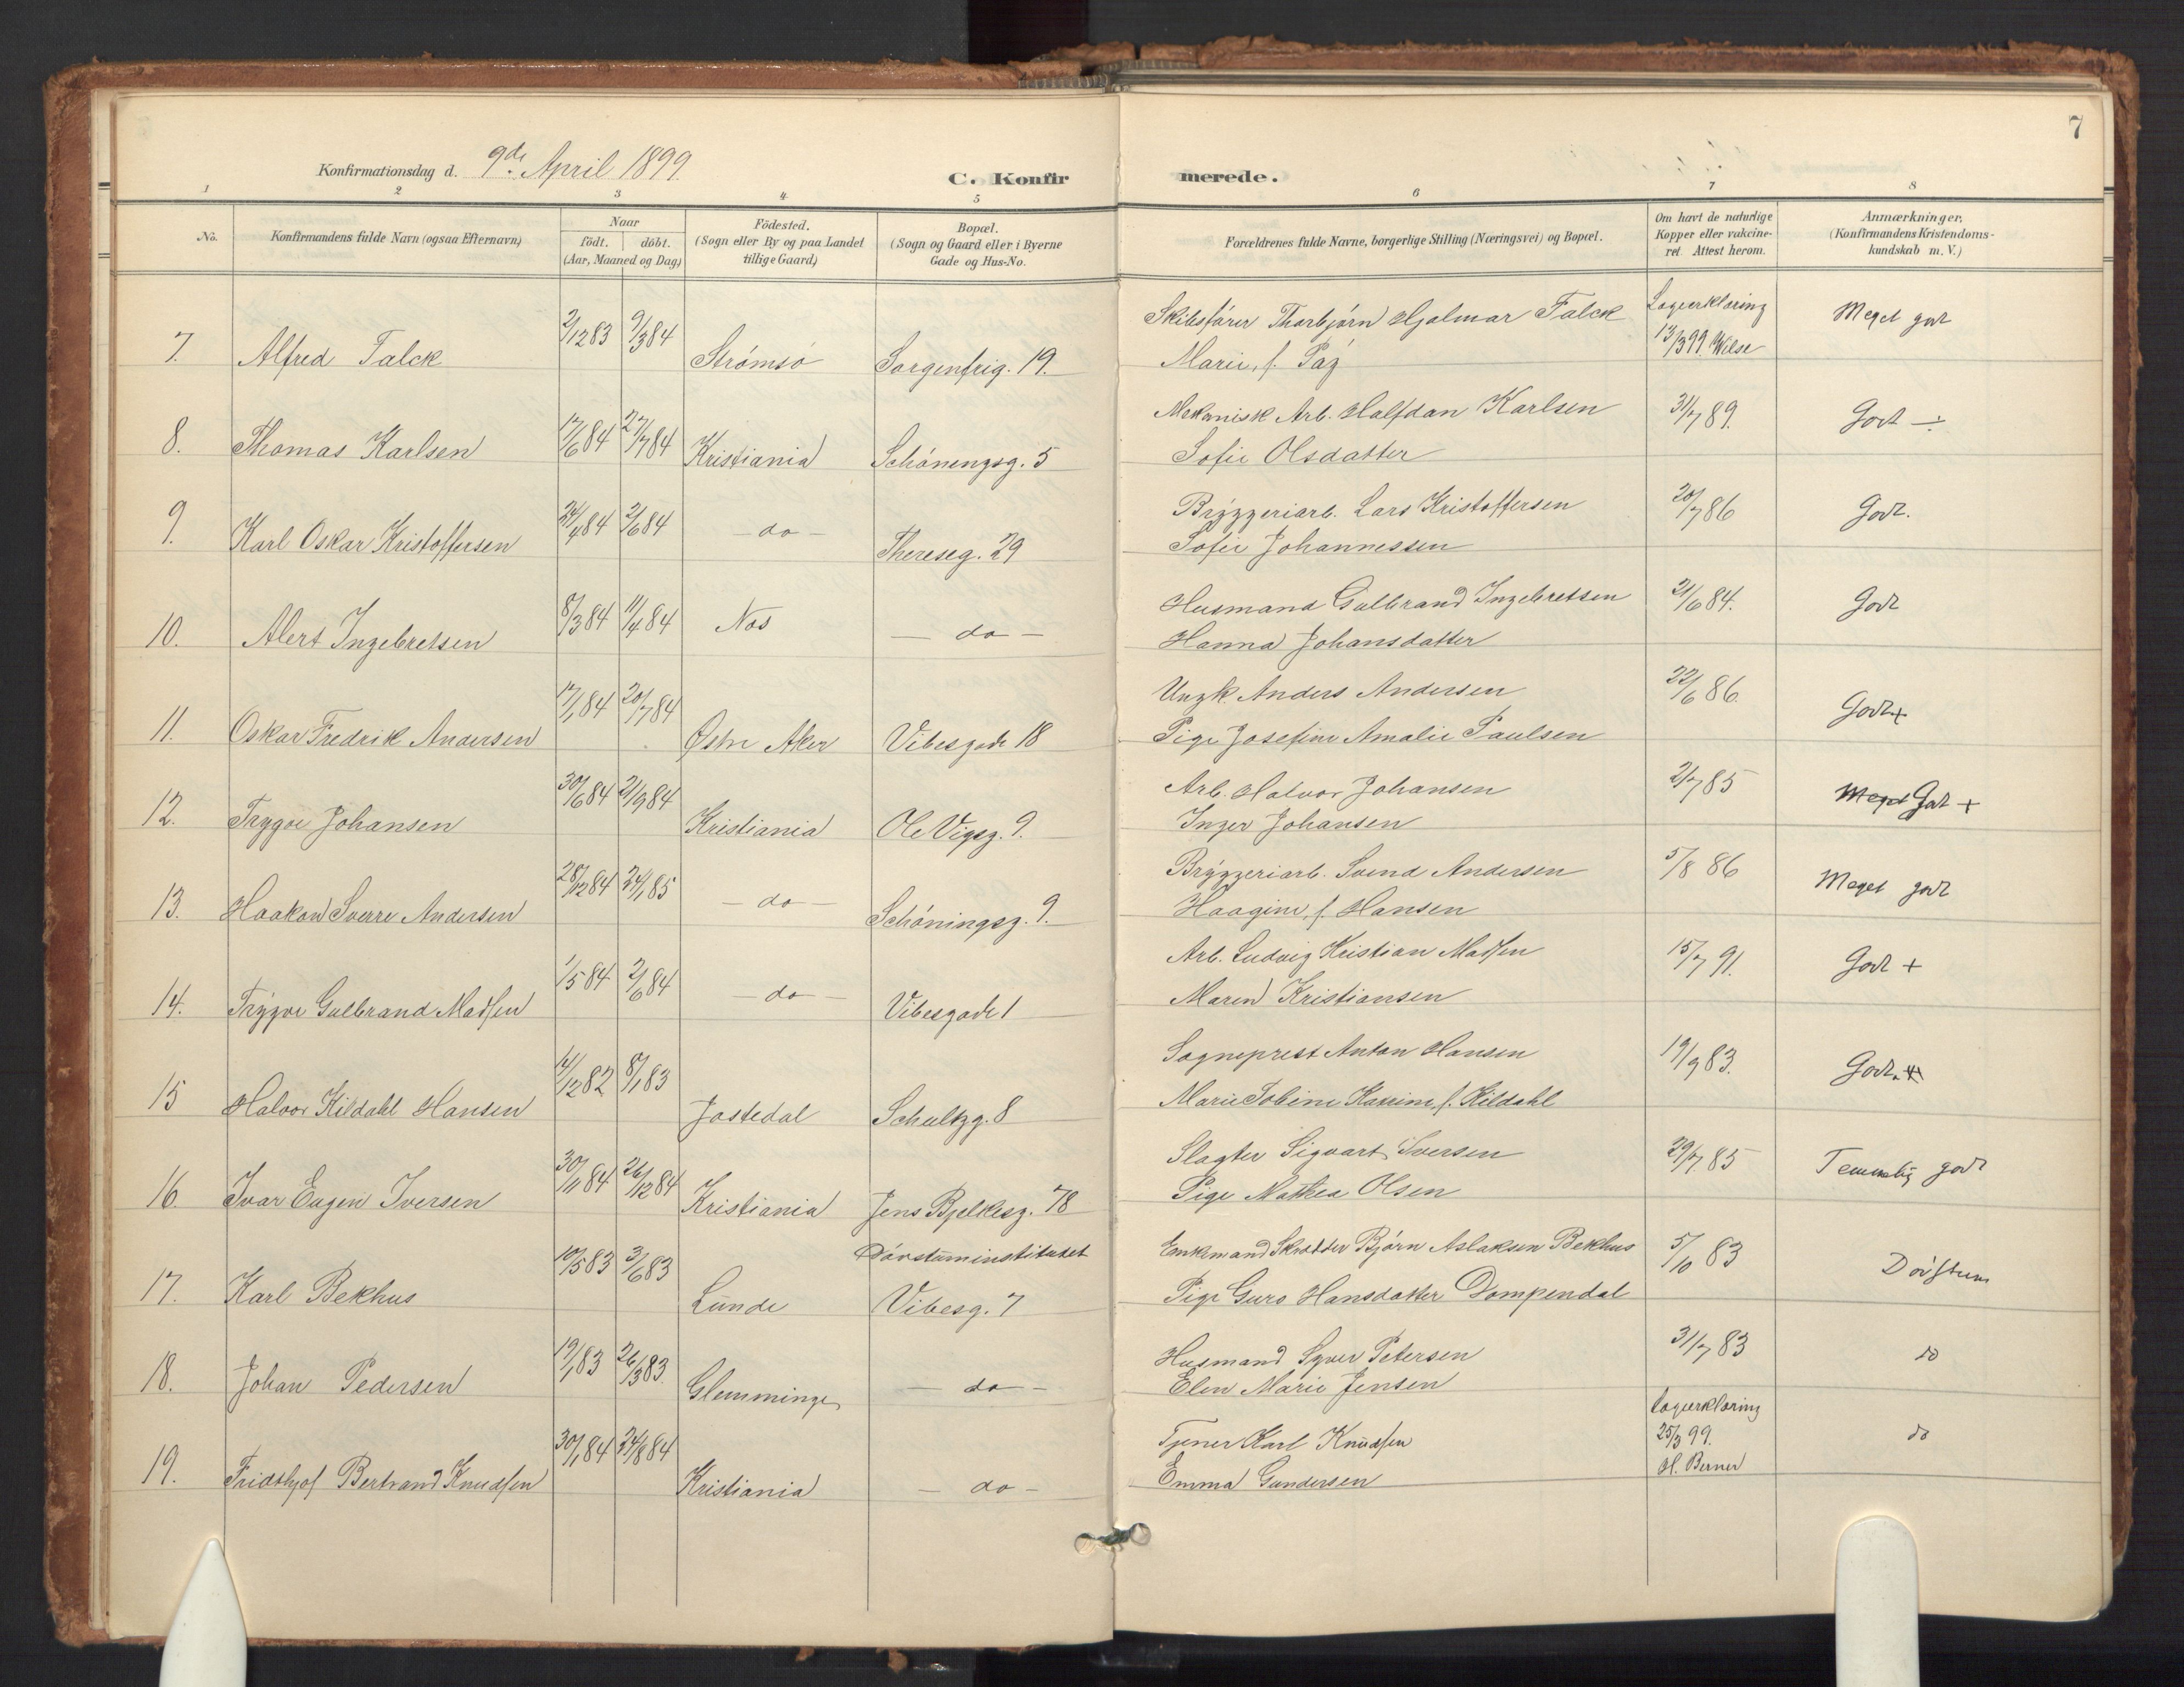 7
Konfirmationsdag d. 9de April 1899.
C. Konfirmerede.
1 2 3 4 5 6 7 8
No.
Konfirmandens fulde Navn (ogsaa Efternavn)
Naar
födt. döbt.
(Aar, Maaned og Dag)
Födested.
(Sogn eller By og paa Landet
tillige Gaard)
Bopæl.
(Sogn og Gaard eller i Byerne
Gade og Hus-No.
Forældrenes fulde Navne, borgerlige Stilling (Næringsvei) og Bopæl.
Om havt de naturlige
Kopper eller vakcine-
ret Attest herom.
Anmærkninger.
(Konfirmandens Kristendoms-
kundskab m. V.)
7. Alfred Falck 2/12 83 9/3 84 Strömsö Sorgenfrig. 19.
Skibsförer Thorbjörn Hjalmar Falck
Marie, f.
Lægeerklæring
13/3 99. Wilse
Meget godt
8. Thomas Karlsen 17/6 84 27/7 84 Kristiania Schönengsg. 5
Mekanisk Arb. Halfdan Karlsen
Sofie Olsdatter
31/7 89.
Godt ÷
9. Karl Oskar Kristoffersen 24/4 84 2/6 84 - do - Thereseg. 29
Bryggeriarb. Lars Kristoffersen
Sofie Johannessen
20/7 86
Godt.
10. Alert Ingebretsen 8/3 84 11/4 84 Nes - do -
Husmand Gulbrand Ingebretsen
Hanna Johansdatter
21/6 84.
Godt
11. Oskar Fredrik Andersen 17/1 84 20/7 84 Østre Aker Vibesgade 18
Ungk. Anders Andersen
Pige Josefine Amalie Paulsen
22/6 86.
Godt +
12. Trygve Johansen 30/6 84 21/9 84 Kristiania Ole Vigsg. 9.
Arb. Halvor Johansen
Inger Johansen
2/7 85
Meget Godt +
13. Haakon Sverre Andersen 28/12 84 24/1 85 - do - Schöningsg. 9.
Bryggeriarb. Svend Andersen
Haagine, f. Hansen
5/8 86
Meget godt
14. Trygve Gulbrand Madsen 1/5 84 2/6 84 - do - Vibesgade 1
Arb. Ludvig Kristian Madsen
Maren Kristiansen
15/7 91.
Godt +
15 Halvor Kildahl Hansen 14/12 82 8/1 83 Jostedal Schultzg. 8
Sogneprest Anton Hansen
Marie Tobine Katrine, f. Kildahl
19/9 83.
Godt. +
16. Ivar Eugen Iversen 30/11 84 26/12 84 Kristiania Jens Bjelkesg. 78
Slagter Sigvart Iversen
Pige Mathea Olsen
29/7 85
Temmelig godt
17. Karl Bekhus 10/5 83 3/6 83 Lunde Dövstuminstitutet
Vibesg. 7
Enkemand Skrædder Björn Aslaksen Bekhus
Pige Guro Hansdatter Dompendal
5/10 83
Dövstum
18. Johan Pedersen 19/1 83 26/3 83. Glemminge - do -
Husmand Syver Petersen
Elen Marie Jensen
31/7 83
do
19. Fridthjof Bertrand Knudsen 30/1 84 24/8 84 Kristiania - do -
Tjener Karl Knudsen
Emma Gundersen
Lægeerklæring
25/3 99.
H. Berner
do